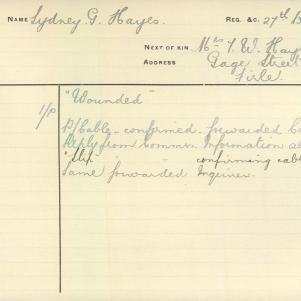 NAME Sydney G. Hayes. REG. &C. 27th B
NEXT OF KIN Mrs T. W. Hay
ADDRESS Gage Street
Firle
"Wounded"
1/P B/Cable - confirmed. forwarded
Reply from Common Information
"Slip" " " confirming cabl
Same forwarded Inquirer.